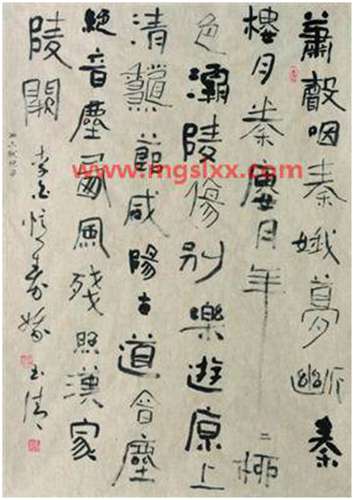 蕭聲咽秦娥夢斷秦
樓月秦廔月年二柳
色灞陵傷別樂遊原上
清秋節咸陽古道音塵
絕音塵西風殘照漢家
陵闕 李白憶秦娥 玉清
www.mgslxx.com